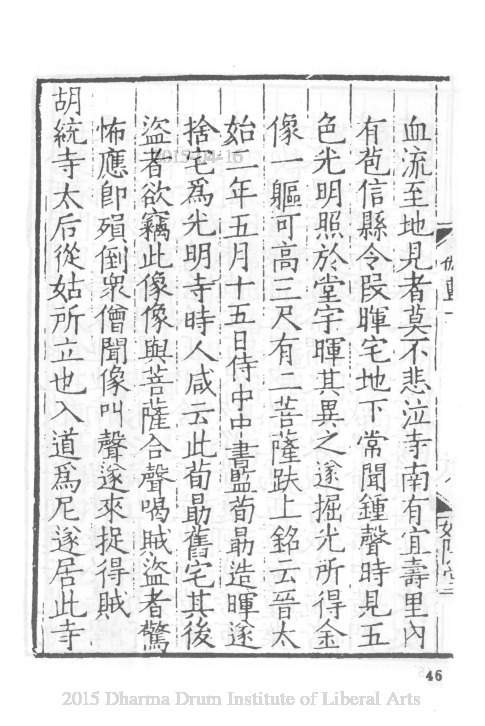 血流至地見者莫不悲泣寺南有宜壽里內
有苞信縣令段暉宅地下常聞鍾聲時見五
色光明照於堂宇暉甚異之遂掘光所得金
像一軀可高三尺有二菩薩趺上銘云晉太
始二年五月十五日侍中中書監荀勗造暉遂
捨宅爲光明寺時人咸云此荀勗舊宅其後
盜者欲竊此像像與菩薩合聲喝賊盜者驚
怖應卽殞倒衆僧聞像叫聲遂來捉得賊
胡統寺太后從姑所立也入道爲尼遂居此寺
46
2015 Dharma Drum Institute of Liberal Arts